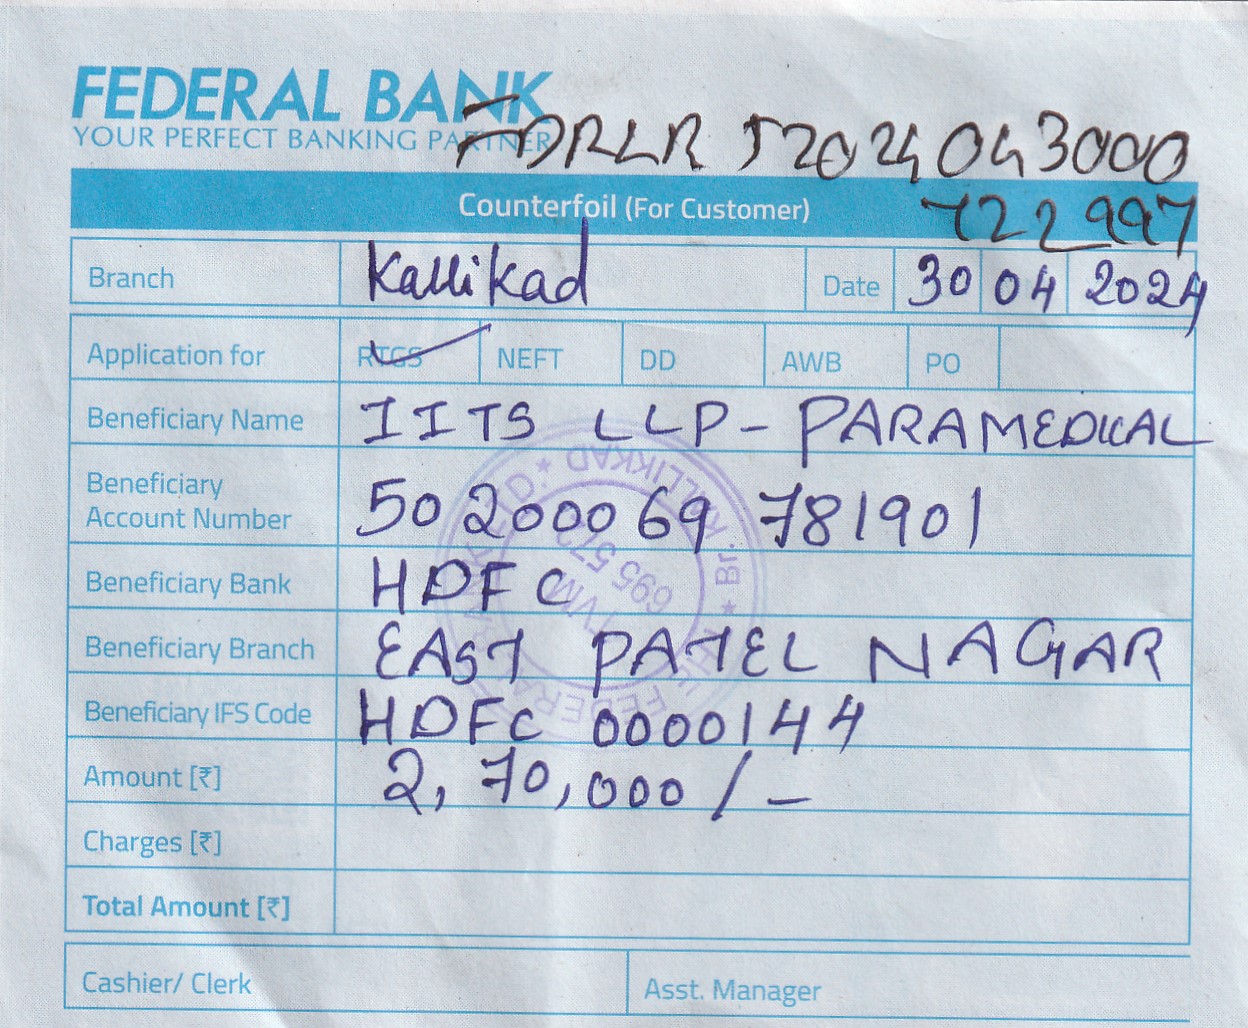 FEDERAL BANK
YOUR PERFECT BANKING PARTNER
FDRLR 52024043000
722997
Counterfoil (For Customer)
Branch Kallikad Date 30 04 2024
Application for RTGS NEFT DD AWB PO
Beneficiary Name IITS LLP - PARAMEDICAL
Beneficiary Account Number 50200069781901
Beneficiary Bank HDFC
Beneficiary Branch EAST PATEL NAGAR
Beneficiary IFS Code HDFC 0000144
Amount [₹] 2,70,000/-
Charges [₹]
Total Amount [₹]
Cashier/ Clerk Asst. Manager
FEDERAL BANK LTD. ★ Br. KALLIKKAD ★
TVM
695 573